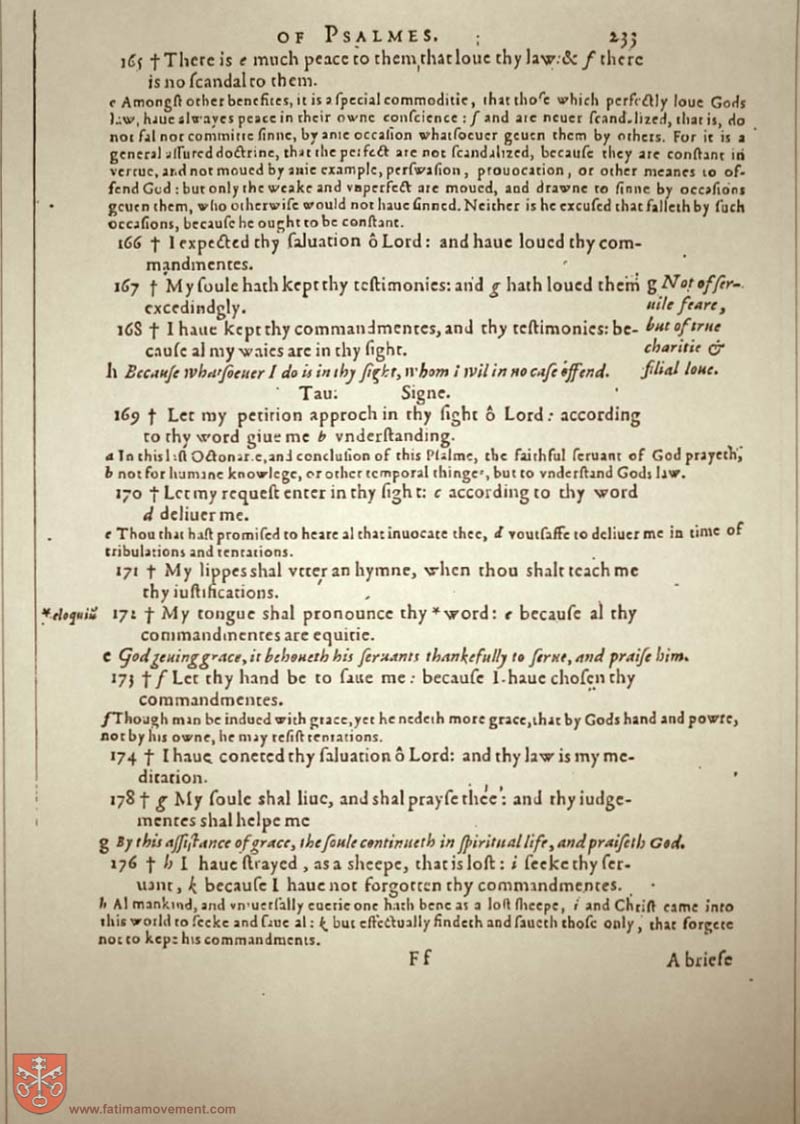 OF PSALMES. 233
165 † There is e much peace to them, that loue thy law: & f there
is no ſcandal to them.
e Amongſt other benefites, it is a ſpecial commoditie, that thoſe which perfectly loue Gods
law, haue alwayes peace in their owne conſcience: f and are neuer ſcandalized, that is, do
not fal nor committe ſinne, by anie occaſion whatſoeuer geuen them by others. For it is a
general aſſured doctrine, that the perfect are not ſcandalized, becauſe they are conſtant in
vertue, and not moued by anie example, perſwaſion, prouocation, or other meanes to of-
fend God: but only the weake and vnperfect are moued, and drawne to ſinne by occaſions
geuen them, who otherwiſe would not haue ſinned. Neither is he excuſed that falleth by ſuch
occaſions, becauſe he ought to be conſtant.
166 † I expected thy ſaluation ô Lord: and haue loued thy com-
mandmentes.
167 † My ſoule hath kept thy teſtimonies: and g hath loued them
exceedingly.
g Not of ſer-
uile feare,
but of true
charitie &
filial loue.
168 † I haue kept thy commandmentes, and thy teſtimonies: be-
cauſe al my waies are in thy ſight.
h Becauſe whatſoeuer I do is in thy ſight, whom i wil in no caſe offend.
Tau: Signe.
169 † Let my petition approch in thy ſight ô Lord: according
to thy word giue me b vnderſtanding.
a In this laſt Octonarie, and concluſion of this Pſalme, the faithful ſeruant of God prayeth,
b not for humane knowlege, or other temporal thinges, but to vnderſtand Gods law.
170 † Let my requeſt enter in thy ſight: c according to thy word
d deliuer me.
c Thou that haſt promiſed to heare al that inuocate thee, d voutſaffe to deliuer me in time of
tribulations and tentations.
171 † My lippes shal vtter an hymne, when thou shalt teach me
thy iuſtifications.
*eloquiũ 172 † My tongue shal pronounce thy * word: e becauſe al thy
commandmentes are equitie.
e God geuing grace, it behoueth his ſeruants thankefully to ſerue, and praiſe him.
173 † f Let thy hand be to ſaue me: becauſe I haue choſen thy
commandmentes.
f Though man be indued with grace, yet he nedeth more grace, that by Gods hand and powre,
not by his owne, he may reſiſt tentations.
174 † I haue coneted thy ſaluation ô Lord: and thy law is my me-
ditation.
178 † g My ſoule shal liue, and shal prayſe thee: and thy iudge-
mentes shal helpe me
g By this aſſiſtance of grace, the ſoule continueth in ſpiritual life, and praiſeth God.
176 † h I haue ſtrayed, as a sheepe, that is loſt: i ſeeke thy ſer-
uant, k becauſe I haue not forgotten thy commandmentes.
h Al mankind, and vniuerſally euerie one hath bene as a loſt sheepe, i and Chriſt came into
this world to ſeeke and ſaue al: k but effectually findeth and ſaueth thoſe only, that forgete
not to kepe his commandments.
Ff A briefe
www.fatimamovement.com